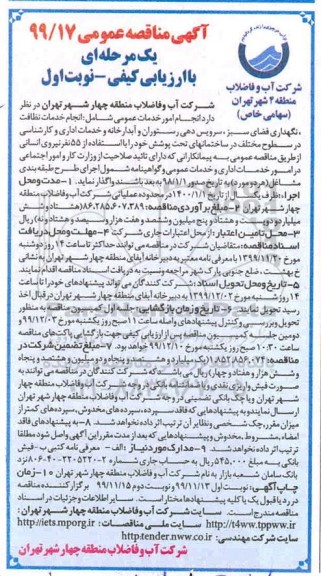 آگهی مناقصه عمومی ۹۹/۱۷
یک مرحله‌ای
با ارزیابی کیفی - نوبت اول
شرکت آب و فاضلاب
منطقه ۴ شهر تهران
(سهامی خاص)
شرکت آب و فاضلاب منطقه چهار شهر تهران در نظر
دارد انجام امور خدمات عمومی شامل: انجام خدمات نظافت
، نگهداری فضای سبز، سرویس دهی رستوران و آبدارخانه و خدمات اداری و کارشناسی
در سطوح مختلف در ساختمانهای تحت پوشش خود را با استفاده از ۵۵ نفر نیروی انسانی
از طریق مناقصه عمومی به پیمانکارانی که دارای تائید صلاحیت از وزارت کار و امور اجتماعی
در امور خدمات اداری و خدمات عمومی و گواهینامه شمول اجرای طرح طبقه بندی
مشاغل (هر دو مورد) به تاریخ صدور ۹۸/۱/۱ به بعد باشند واگذار نماید. ۱- مدت و محل
اجرا: ظرف یکسال از تاریخ ۱۴۰۰/۱/۱ در محدوده عملیاتی شرکت آب و فاضلاب منطقه
چهار شهر تهران ۲- مبلغ برآوردی مناقصه: ۸۶،۲۸۵،۶۰۷،۳۸۹ (هشتاد و شش
میلیارد و دویست و هشتاد و پنج میلیون و ششصد و هفت هزار و سیصد و هشتاد و نه) ریال
۳- محل تامین اعتبار: از محل اعتبارات جاری شرکت ۴- مهلت و محل دریافت
اسناد مناقصه: متقاضیان شرکت در مناقصه می توانند حداکثر تا ساعت ۱۴ روز دوشنبه
مورخ ۱۳۹۹/۱۱/۲۰ با معرفی نامه معتبر به دبیرخانه آبفای منطقه چهار شهر تهران به نشانی
خ بهشت، ضلع جنوبی پارک شهر مراجعه و نسبت به دریافت اسناد مناقصه اقدام نمایند.
۵- تاریخ و محل تحویل اسناد: شرکت کنندگان می تواند پیشنهادهای خود را تا ساعت
۱۴ روز شنبه مورخ ۱۳۹۹/۱۲/۰۲ به دبیرخانه آبفای منطقه چهار شهر تهران در قبال اخذ
رسید تحویل نمایند. ۶- تاریخ و زمان بازگشایی: جلسه اول کمیسیون مناقصه به منظور
تحویل و بررسی و کنترل پیشنهادهای واصله ساعت ۱۱ صبح روز یکشنبه مورخ ۹۹/۱۲/۰۳ و
دومین جلسه کمیسیون مناقصه پس از ارزیابی کیفی جهت بازگشایی پاکت های مناقصه
ساعت ۱۰:۳۰ صبح روز یکشنبه مورخ ۹۹/۱۲/۱۰ خواهد بود. ۷- مبلغ تضمین شرکت در
مناقصه: ۱،۸۵۲،۸۵۶،۰۷۴ (یک میلیارد و هشتصد و پنجاه و دو میلیون و هشتصد و پنجاه
و شش هزار و هفتاد و چهار) ریال می باشد که شرکت کنندگان در مناقصه می توانند به
صورت فیش واریزی نقدی و یا ضمانتنامه بانکی در وجه شرکت آب و فاضلاب منطقه چهار
شهر تهران و یا چک بانکی تضمینی در وجه شرکت آب و فاضلاب منطقه چهار شهر تهران
ارسال نمایند و به پیشنهادهایی که فاقد سپرده، سپرده های مخدوش، سپرده های کمتر از
میزان مقرر، چک شخصی و نظایر آن ترتیب اثر داده نخواهد شد. ۸- به پیشنهادهای فاقد
امضاء، مشروط، مخدوش و پیشنهادهایی که بعد از مدت مقرر این آگهی واصل شود مطلقا
ترتیب اثر داده نخواهد شد. ۹- مدارک مورد نیاز: الف - معرفی نامه کتبی ب - فیش
بانکی به مبلغ ۵۴۵،۰۰۰ ریال به حساب جاری شماره
بانک سامان شعبه بازار به نام شرکت آب و فاضلاب منطقه چهار شهر تهران ۱۰- زمان
چاپ آگهی: نوبت اول ۹۹/۱۱/۱۳ و نوبت دوم ۹۹/۱۱/۱۵ برگزار کننده مناقصه
در رد یا قبول یک یا کلیه پیشنهادها مختار است. سایر اطلاعات و جزئیات در اسناد
مناقصه مندرج است. سایت شرکت آب و فاضلاب منطقه چهار شهر تهران:
http://t4ww.tppww.ir سایت ملی مناقصات: http://iets.mporg.ir
سایت شرکت مهندسی: http:tender.nww.co.ir
شرکت آب و فاضلاب منطقه چهار شهر تهران